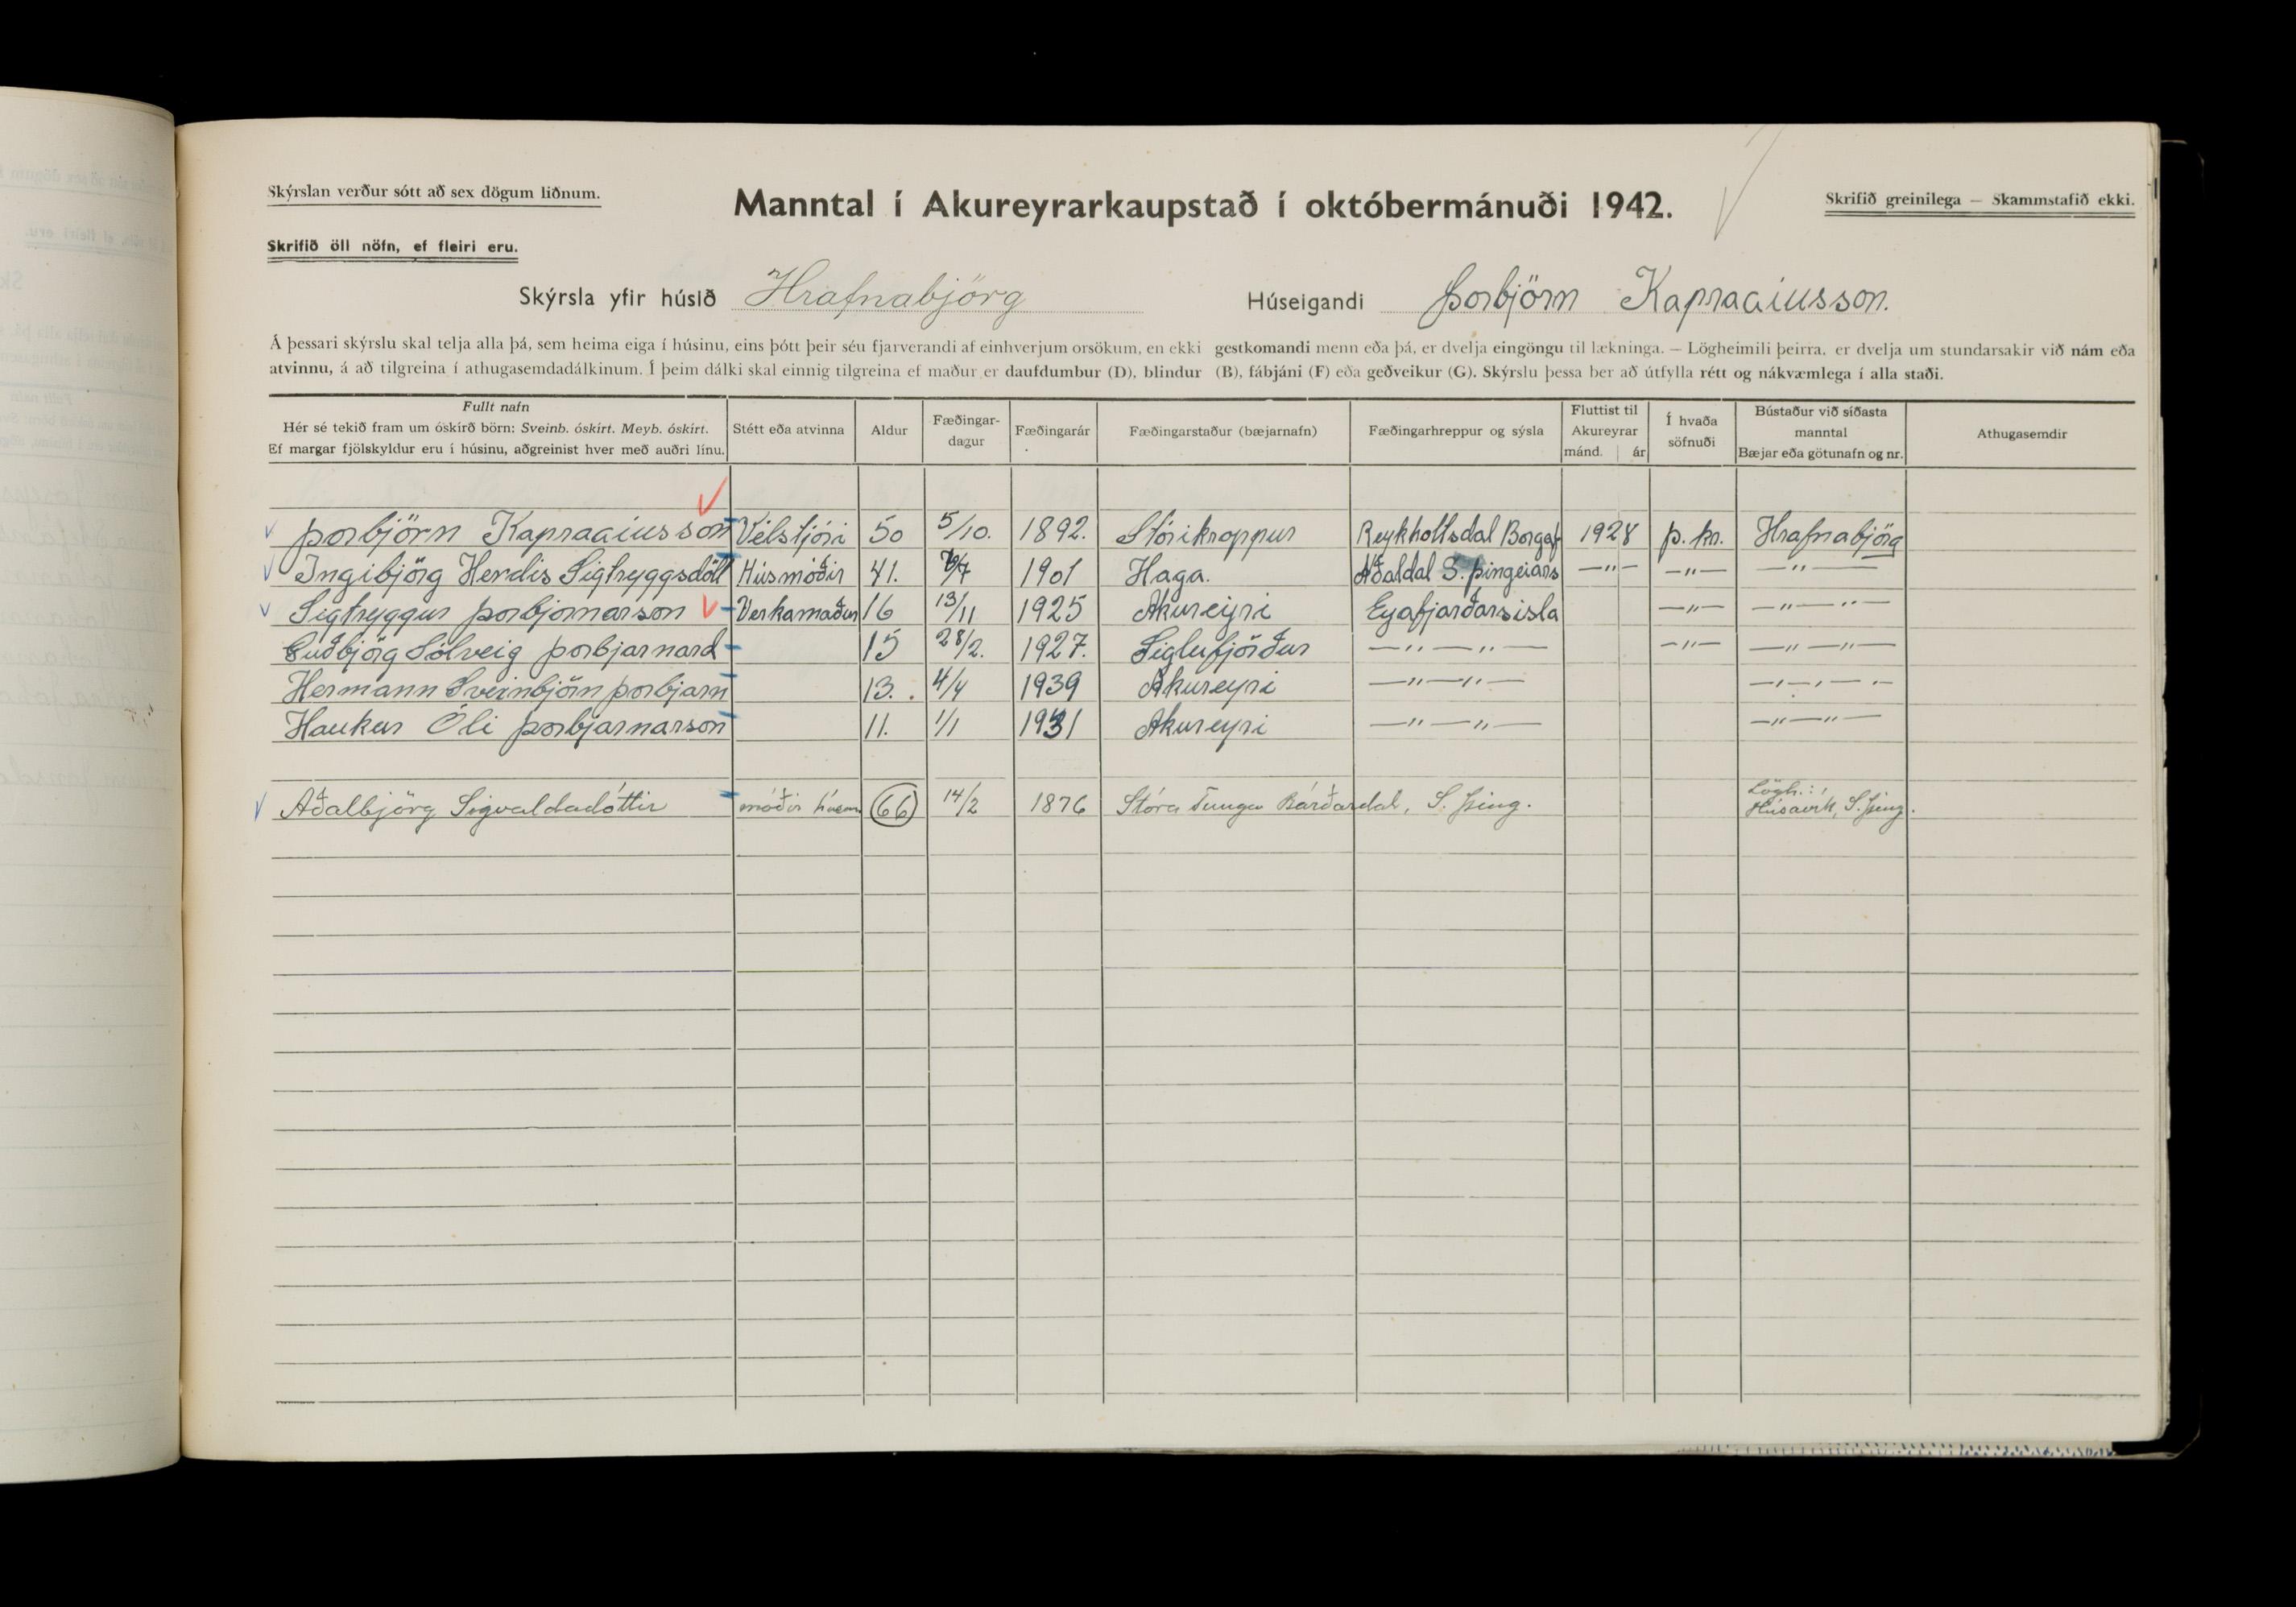 Skýrslan verður sótt að sex dögum liðnum.
Manntal í Akureyrarkaupstað í októbermánuði 1942.
Skrifið greinilega — Skammstafið ekki.
Skrifið öll nöfn, ef fleiri eru.
Skýrsla yfir húsið Hrafnabjörg Húseigandi Þorbjörn Kapraciusson.
Á þessari skýrslu skal telja alla þá, sem heima eiga í húsinu, eins þótt þeir séu fjarverandi af einhverjum orsökum, en ekki gestkomandi menn eða þá, er dvelja eingöngu til lækninga. — Lögheimili þeirra, er dvelja um stundarsakir við nám eða
atvinnu, á að tilgreina í athugasemdadálkinum. Í þeim dálki skal einnig tilgreina ef maður er daufdumbur (D), blindur (B), fábjáni (F) eða geðveikur (G). Skýrslu þessa ber að útfylla rétt og nákvæmlega í alla staði.
Fullt nafn
Hér sé tekið fram um óskírð börn: Sveinb. óskírt. Meyb. óskírt.
Ef margar fjölskyldur eru í húsinu, aðgreinist hver með auðri línu.
Stétt eða atvinna
Aldur
Fæðingar-
dagur
Fæðingarár
Fæðingarstaður (bæjarnafn)
Fæðingarhreppur og sýsla
Fluttist til
Akureyrar
mánd. ár
Í hvaða
söfnuði
Bústaður við síðasta
manntal
Bæjar eða götunafn og nr.
Athugasemdir
Þorbjörn Kapraciusson Vélstjóri 50 5/10. 1892. Stórikroppur Reykholtsdal Borgaf 1928 þ. kr. Hrafnabjörg
Ingibjörg Herdis Sigtryggsdótt Húsmóðir 41. 1901 Haga. Aðaldal S. þingeiars —"— —"— —"—
Sigtryggur Þorbjörnarson Verkamaður 16 13/11 1925 Akureyri Eyafjarðarsisla —"— —"—"—
Guðbjörg Sólveig Þorbjarnard 15 28/2. 1927. Siglufjörður —"—"— —"— —"—"—
Hermann Sveinbjörn Þorbjarn 13. 4/4 1939 Akureyri —"—"— —"—"—
Haukur Óli Þorbjarnarson 11. 1/1 1931 Akureyri —"—"— —"—"—
Lögh.:
Aðalbjörg Sigvaldadóttir móðir húsm 66 14/2 1876 Stóra Tunga Bárðardal, S. Þing. Húsavík, S. Þing.